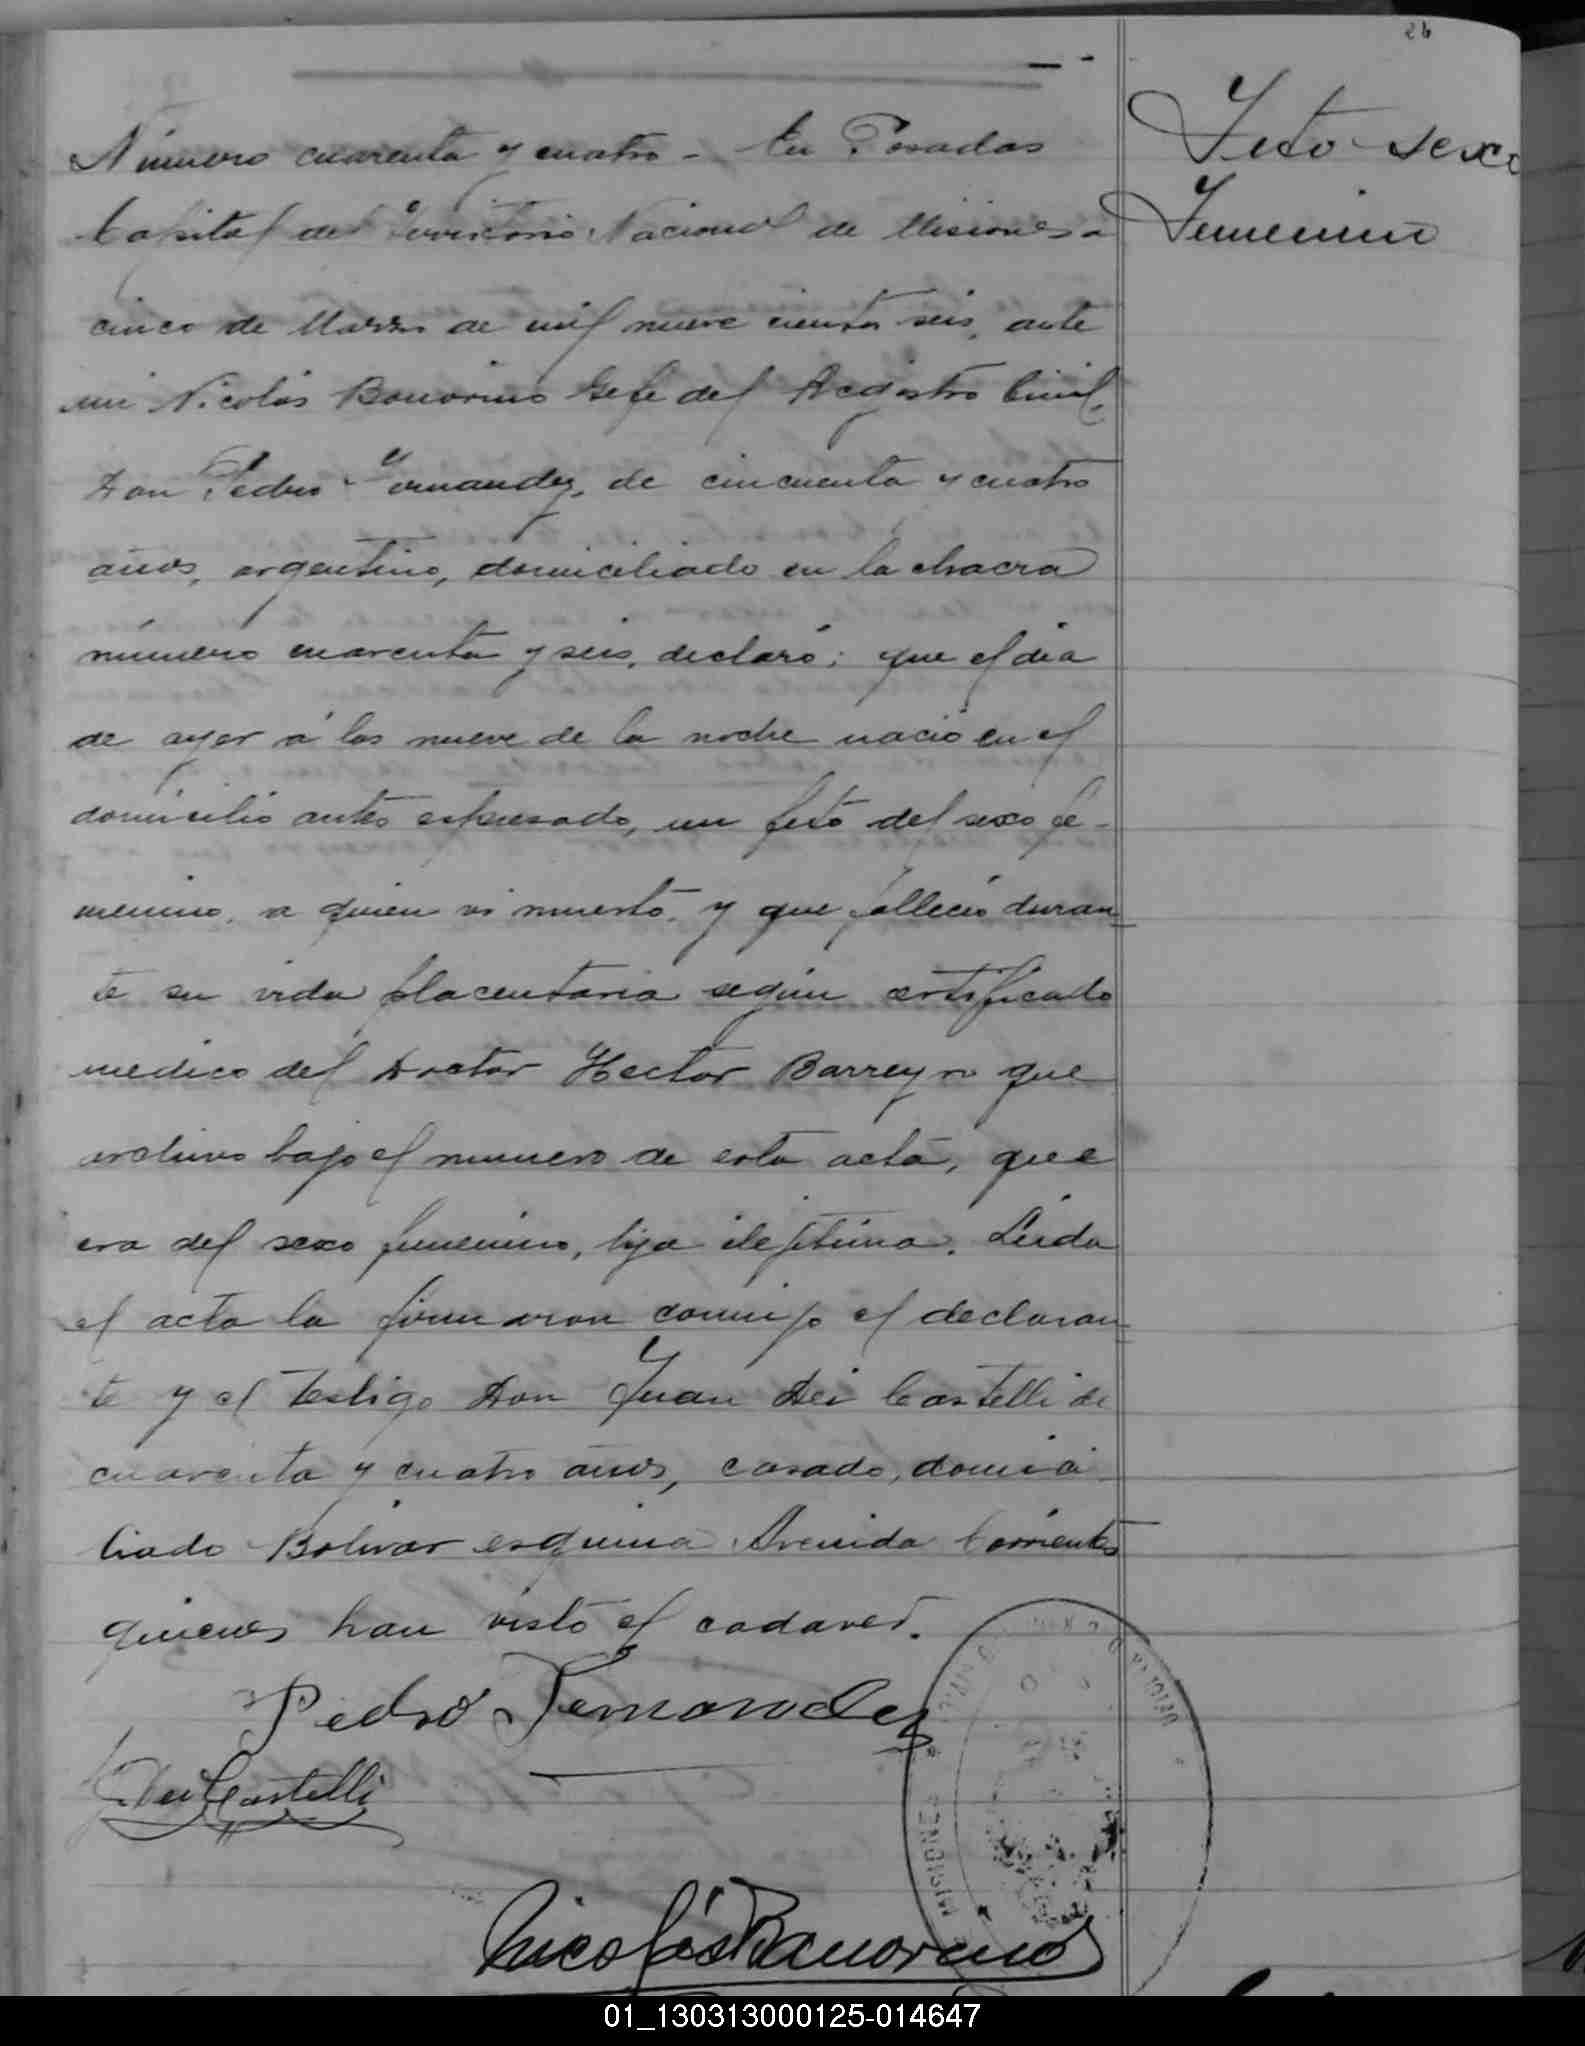 26
Feto sexo
Femenino
Número cuarenta y cuatro - En Posadas
Capital del Territorio Nacional de Misiones a
cinco de Marzo de mil nueve cientos seis, ante
mi Nicolás Bonorino Gefe del Registro Civil,
Don Pedro Fernandez, de cincuenta y cuatro
años, argentino, domiciliado en la chacra
número cuarenta y seis, declaró: que el dia
de ayer á las nueve de la noche nació en el
domicilio antes espresado, un feto del sexo fe-
menino, a quien vi muerto, y que falleció duran
te su vida placentaria según certificado
medico del Doctor Hector Barreyro que
archivo bajo el numero de esta acta, que
era del sexo femenino, hija ilejitima. Leida
el acta la firmaron conmigo el declaran
te y el testigo Don Juan Dei Castelli de
cuarenta y cuatro años, casado, domici
liado Bolivar esquina Avenida Corrientes
quienes han visto el cadaver.
Pedro Fernandez
J. Dei Castelli
MISIONES
Nicolás Bonorino
01_130313000125-014647